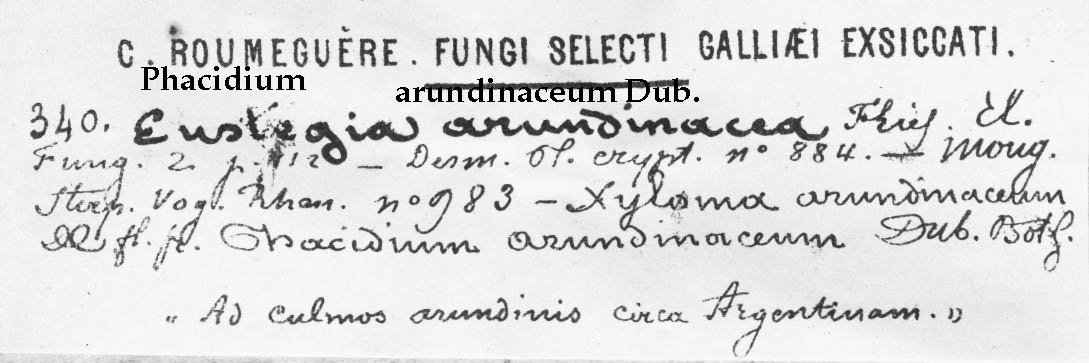 C. ROUMEGUÈRE. FUNGI SELECTI GALLIÆI EXSICCATI.
Phacidium arundinaceum Dub.
340. Eustegia arundinacea Fries. El.
Fung. 2. p. 112 — Desm. Pl. crypt. nº 884. — Moug.
Stirp. Vog. Rhen. nº 983 — Xyloma arundinaceum
DC fl. fr. Phacidium arundinaceum Dub. Bot G.
„ Ad culmos arundinis circa Argentinam. „